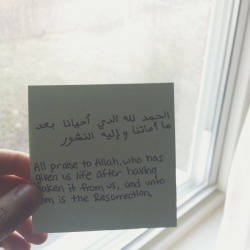 الحمد لله الذي أحيانا بعد
ما أماتنا وإليه النشور
All praise to Allah, who has
given us life after having
taken it from us, and unto
Him is the Resurrection.